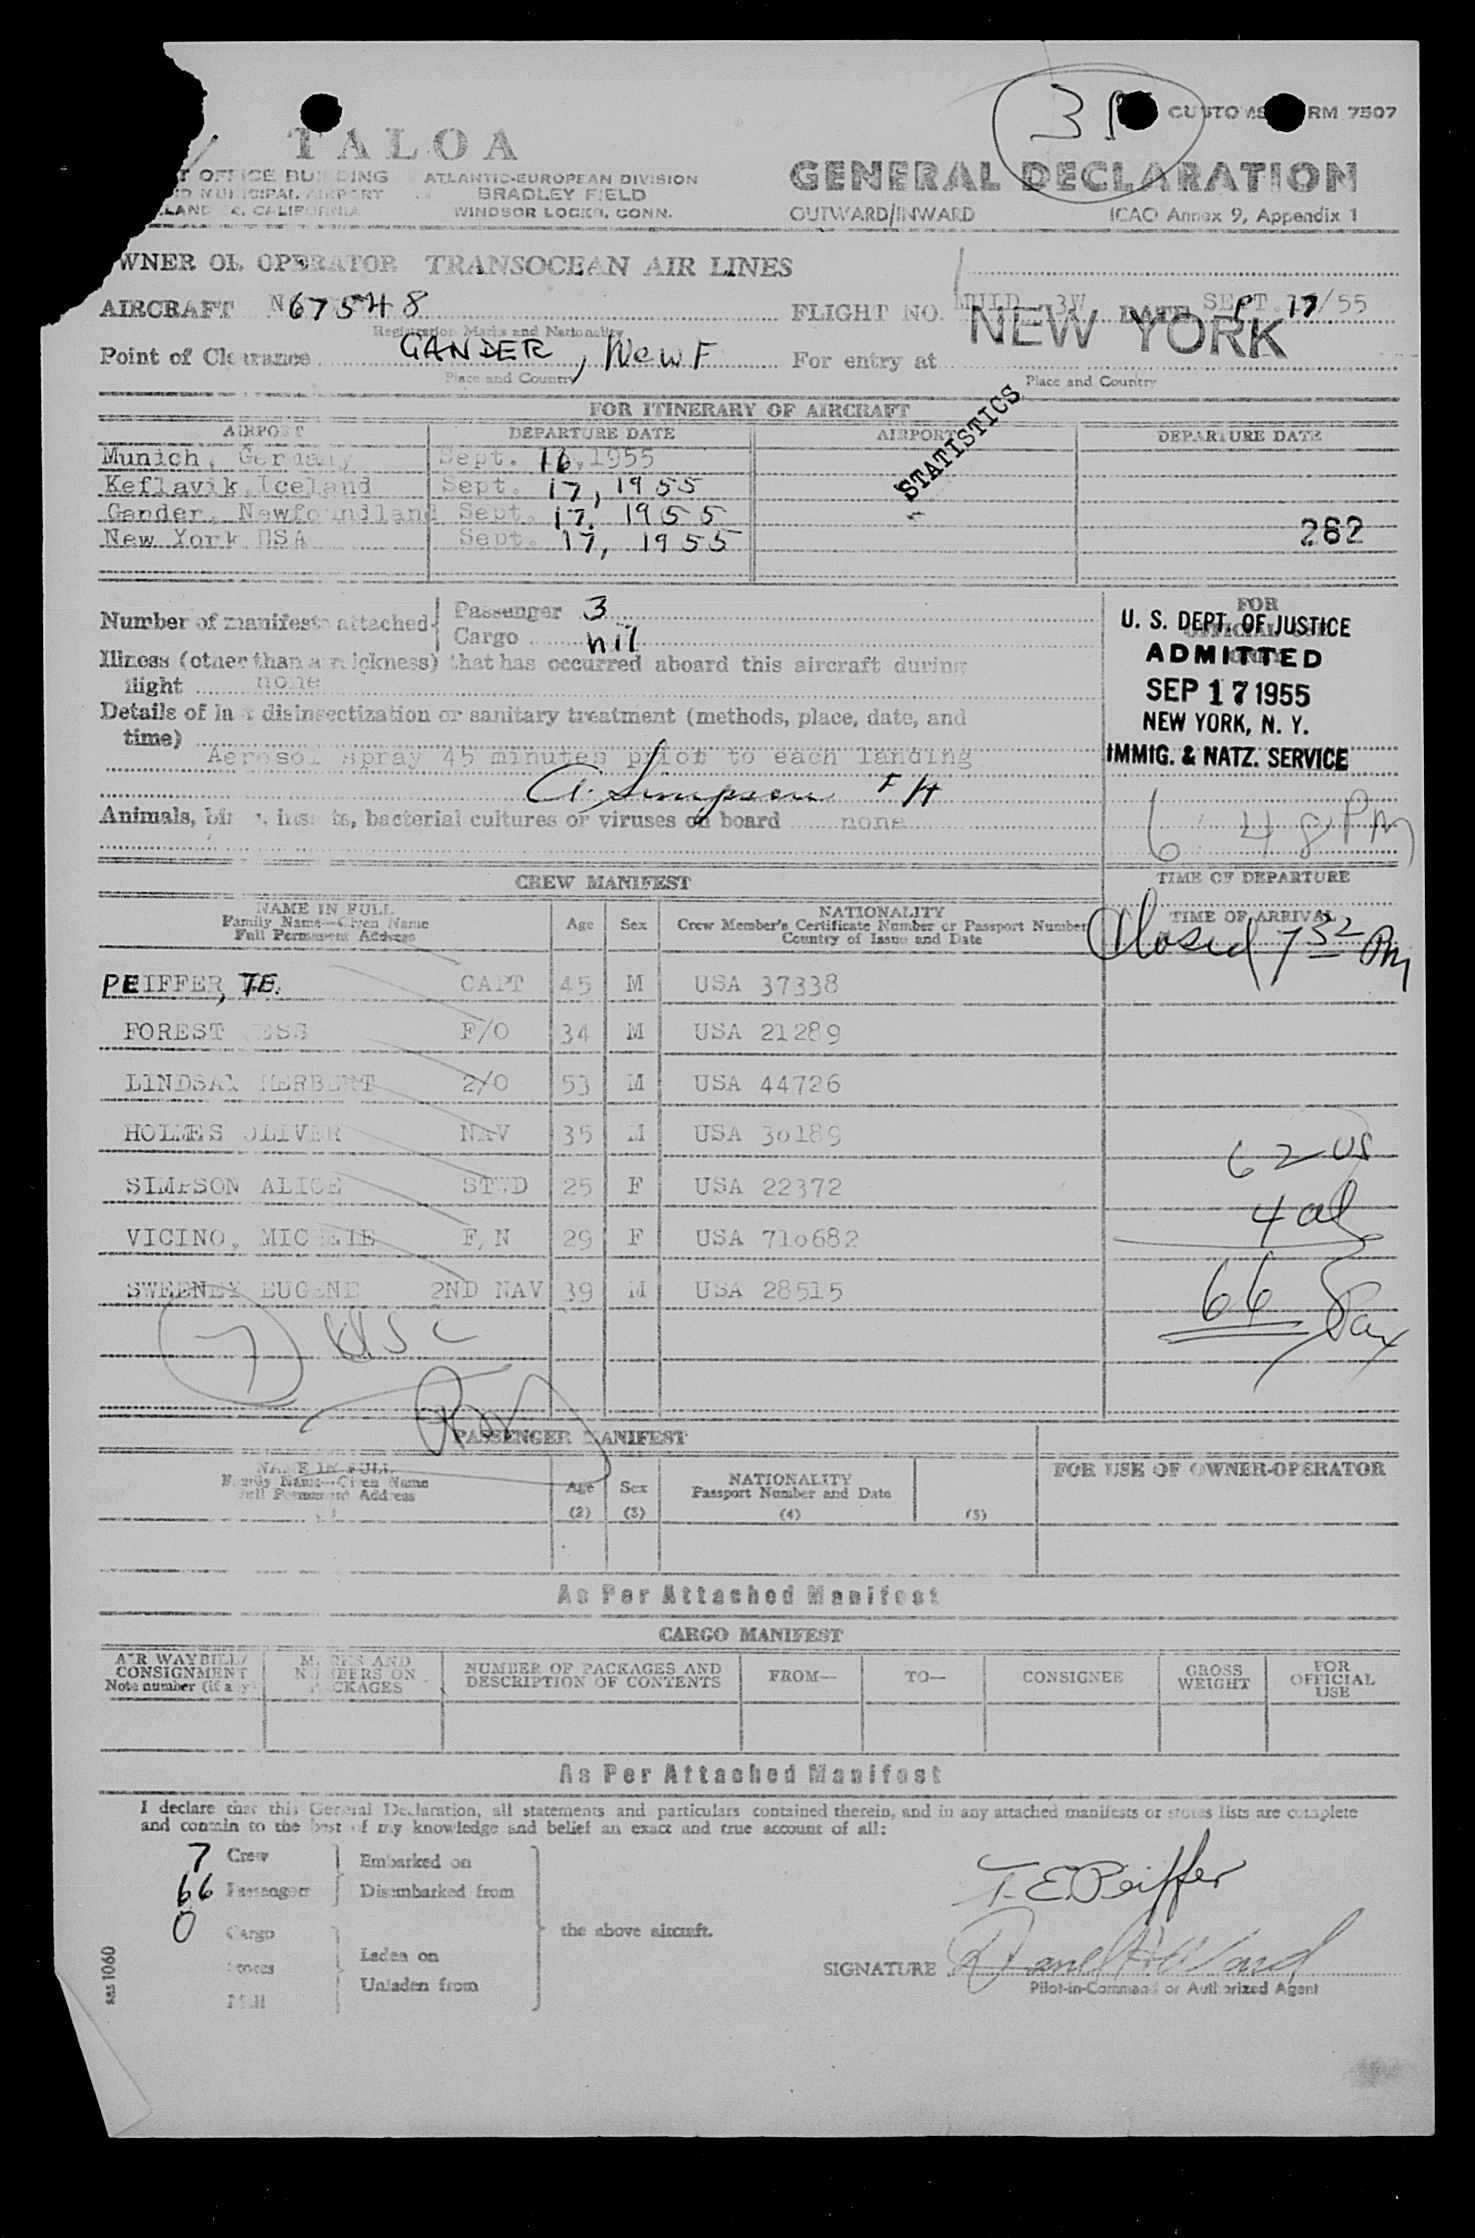 TALOA
CUSTOMS RM 7507
OFFICE BUILDING
ATLANTIC-EUROPEAN DIVISION
MUNICIPAL AIRPORT
BRADLEY FIELD
CALIFORNIA
WINDSOR LOCKS, CONN.
GENERAL DECLARATION
OUTWARD/INWARD ICAO Annex 9, Appendix 1
WNER OR OPERATOR TRANSOCEAN AIR LINES
AIRCRAFT N67548 FLIGHT NO. 3W DATE SEPT. 17/55
Registration Marks and Nationality
NEW YORK
Point of Clearance GANDER, NewF For entry at
Place and Country Place and Country
STATISTICS
FOR ITINERARY OF AIRCRAFT
AIRPORT DEPARTURE DATE AIRPORT DEPARTURE DATE
Munich, Germany Sept. 16, 1955
Keflavik, Iceland Sept. 17, 1955
Gander, Newfoundland Sept. 17, 1955
New York USA Sept. 17, 1955
262
Number of manifests attached Passenger 3
Cargo nil
Illness (other than airsickness) that has occurred aboard this aircraft during
flight none
Details of last disinsectization or sanitary treatment (methods, place, date, and
time)
Aerosol spray 45 minutes prior to each landing
A. Simpson F/H
Animals, birds, insects, bacterial cultures or viruses on board none
FOR
OFFICIAL USE
U. S. DEPT. OF JUSTICE
ADMITTED
SEP 17 1955
NEW YORK, N. Y.
IMMIG. & NATZ. SERVICE
6:48 PM
TIME OF DEPARTURE
TIME OF ARRIVAL
Closed 7 32 PM
CREW MANIFEST
NAME IN FULL
Family Name—Given Name
Full Permanent Address
Age Sex
NATIONALITY
Crew Member's Certificate Number or Passport Number
Country of Issue and Date
PEIFFER, T.E. CAPT 45 M USA 37338
FOREST JESS F/O 34 M USA 21289
LINDSAY HERBERT 2/O 53 M USA 44726
HOLMES OLIVER NAV 35 M USA 30189
SIMPSON ALICE STWD 25 F USA 22372
VICINO, MICHELE F,N 29 F USA 710682
SWEENEY EUGENE 2ND NAV 39 M USA 28515
7 USC
62 US
4 al
66 Pax
PASSENGER MANIFEST
NAME IN FULL
Family Name—Given Name
Full Permanent Address
Age
(2)
Sex
(3)
NATIONALITY
Passport Number and Date
(4)
(5)
FOR USE OF OWNER-OPERATOR
As Per Attached Manifest
CARGO MANIFEST
AIR WAYBILL/
CONSIGNMENT
Note number (if any)
MARKS AND
NUMBERS ON
PACKAGES
NUMBER OF PACKAGES AND
DESCRIPTION OF CONTENTS
FROM—
TO—
CONSIGNEE
GROSS
WEIGHT
FOR
OFFICIAL
USE
As Per Attached Manifest
I declare that this General Declaration, all statements and particulars contained therein, and in any attached manifests or stores lists are complete
and contain to the best of my knowledge and belief an exact and true account of all:
7 Crew Embarked on
66 Passengers Disembarked from
0 Cargo
the above aircraft.
Stores Laden on
Mail Unladen from
T. E. Peiffer
SIGNATURE Daniel H Ward
Pilot-in-Command or Authorized Agent
1060